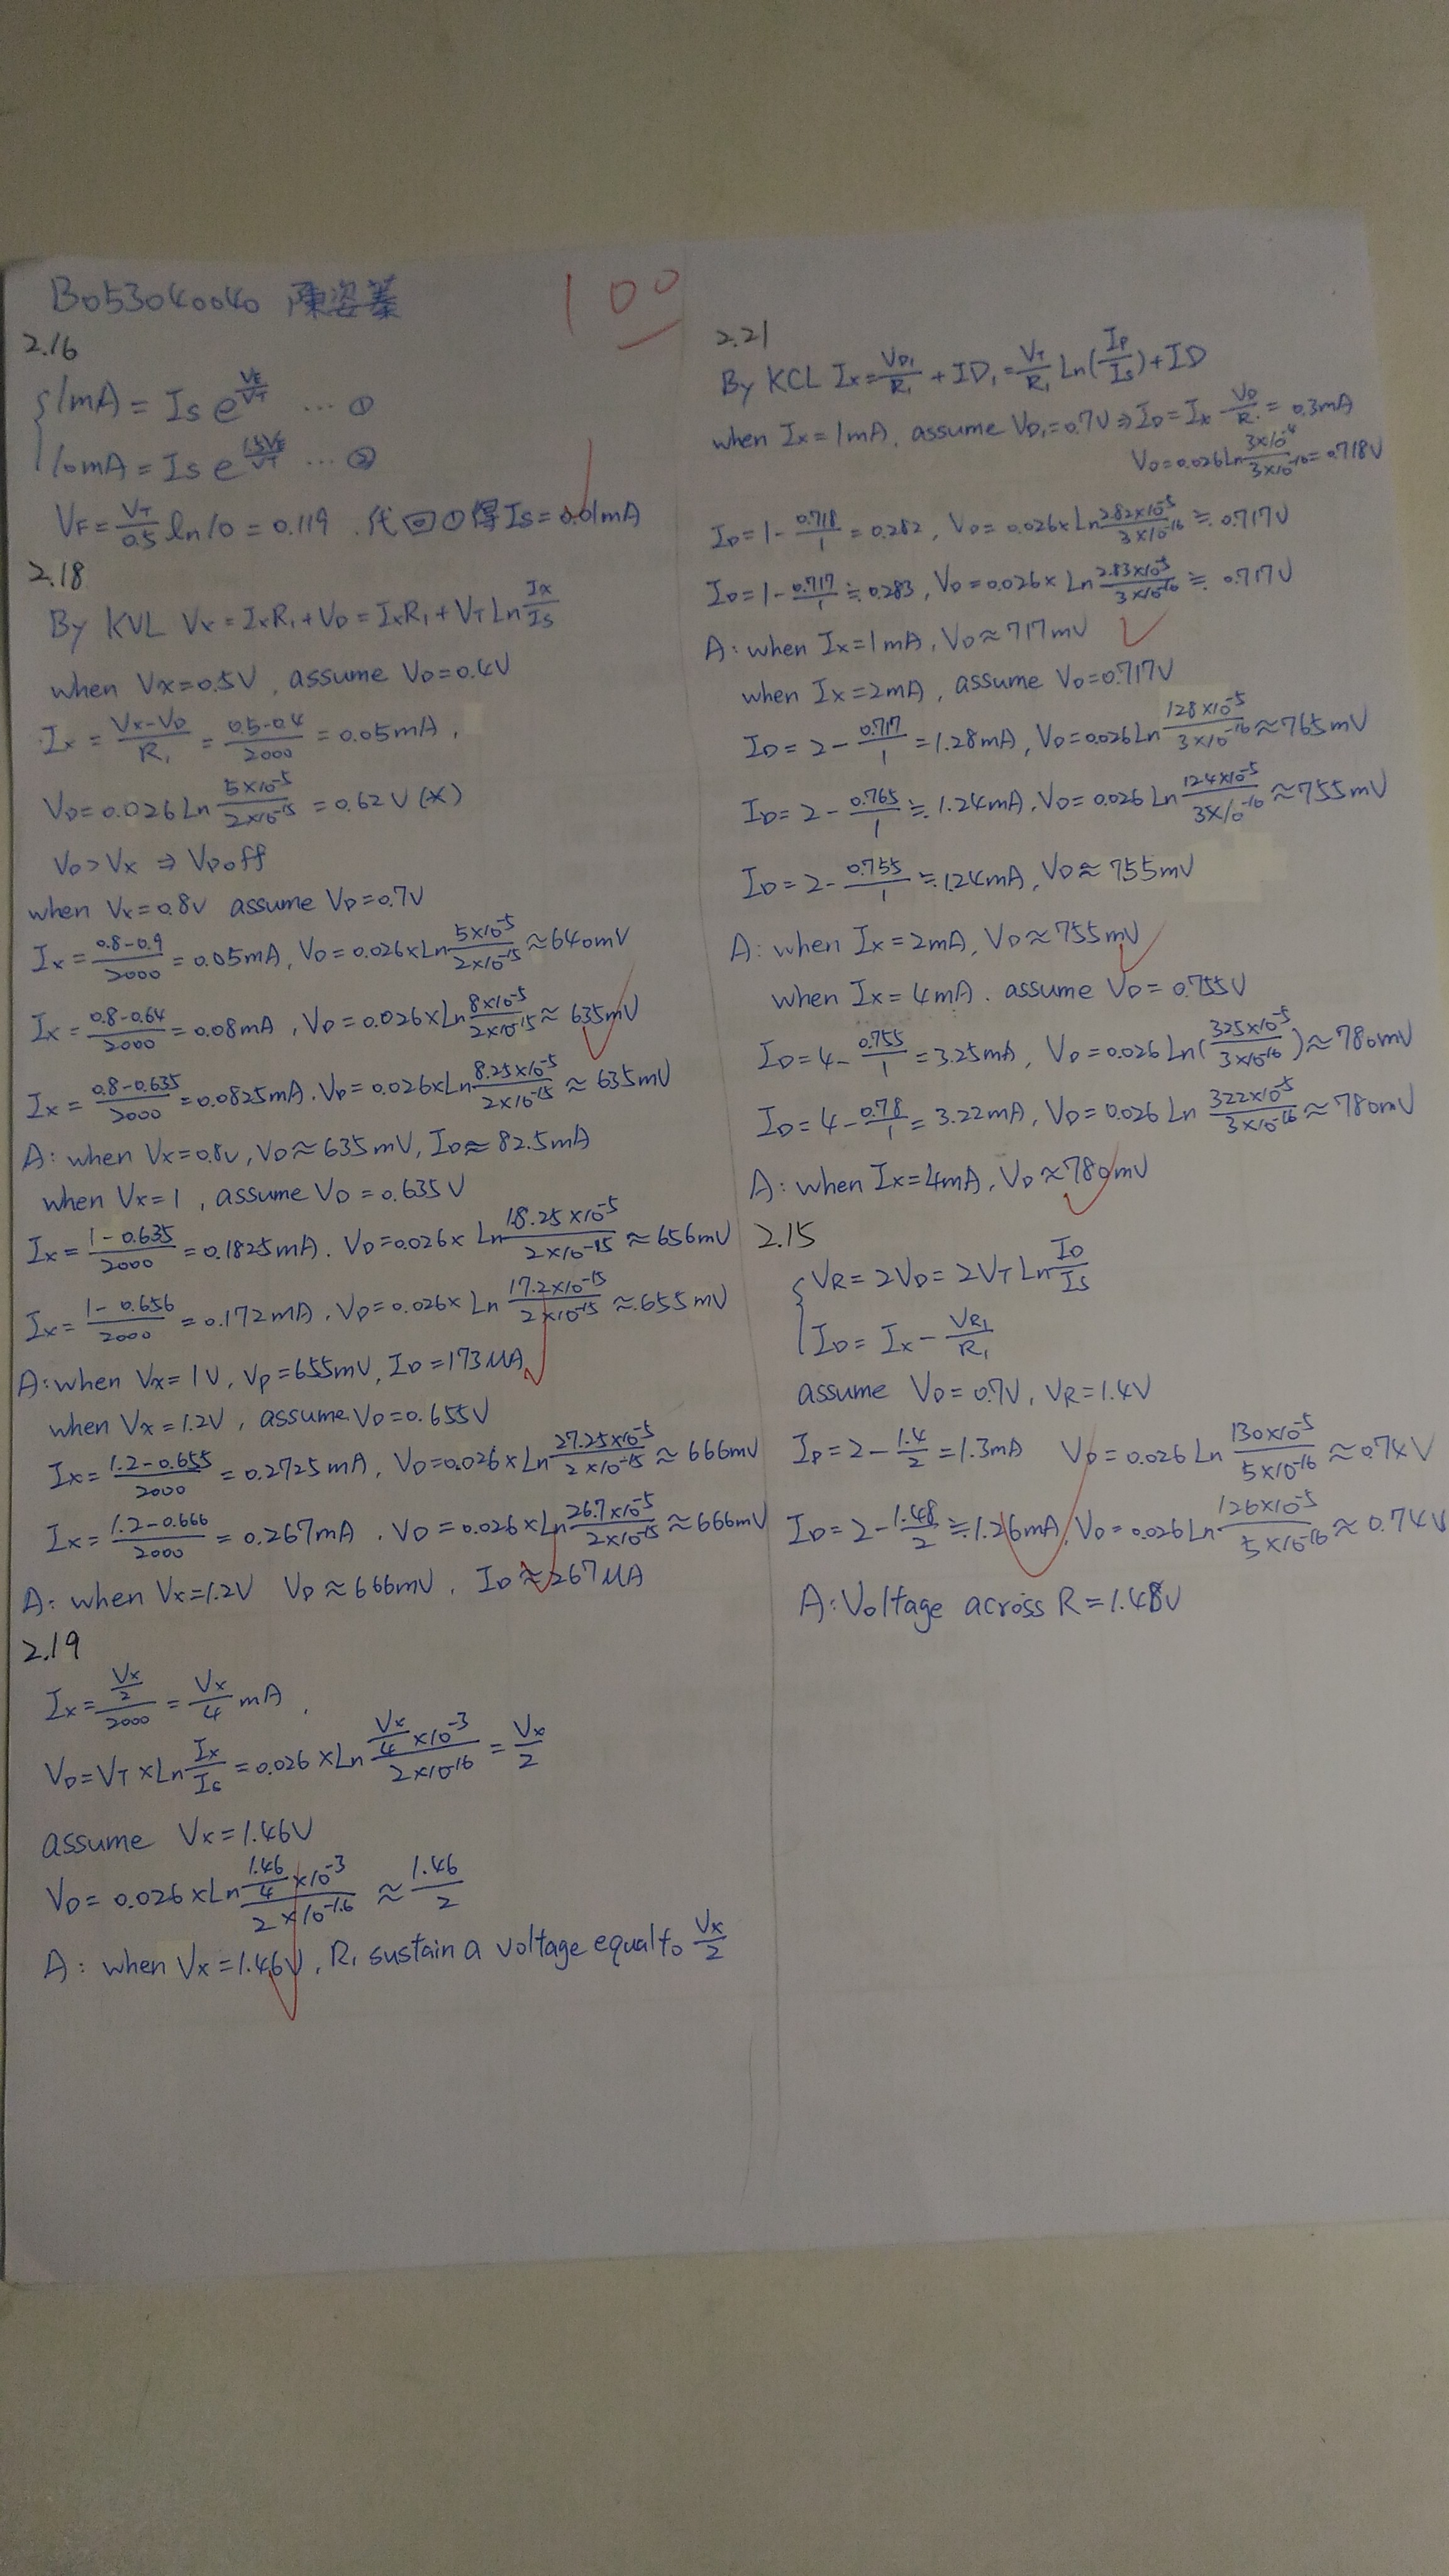 B053040040 陳姿蓁
100
2.16
1mA = Is e^(VF/VT) ... ①
10mA = Is e^(1.5VF/VT) ... ②
VF = VT/0.5 ln10 = 0.119 . 代回①得 Is = 0.01mA
2.18
By KVL Vx = IxR1 + VD = IxR1 + VT Ln Ix/Is
when Vx = 0.5V , assume VD = 0.4V
Ix = (Vx-VD)/R1 = (0.5-0.4)/2000 = 0.05mA ,
VD = 0.026 Ln (5×10^-5)/(2×10^-15) = 0.62V (×)
VD > Vx ⇒ VD off
when Vx = 0.8V assume VD = 0.7V
Ix = (0.8-0.9)/2000 = 0.05mA , VD = 0.026×Ln (5×10^-5)/(2×10^-15) ≈ 640mV
Ix = (0.8-0.64)/2000 = 0.08mA , VD = 0.026×Ln (8×10^-5)/(2×10^-15) ≈ 635mV
Ix = (0.8-0.635)/2000 = 0.0825mA . VD = 0.026×Ln (8.25×10^-5)/(2×10^-15) ≈ 635mV
A: when Vx = 0.8V , VD ≈ 635mV , ID ≈ 82.5mA
when Vx = 1 , assume VD = 0.635V
Ix = (1-0.635)/2000 = 0.1825mA . VD = 0.026× Ln (18.25×10^-5)/(2×10^-15) ≈ 656mV
Ix = (1-0.656)/2000 = 0.172mA . VD = 0.026× Ln (17.2×10^-15)/(2×10^-15) ≈ 655mV
A: when Vx = 1V , VD = 655mV , ID = 173MA
when Vx = 1.2V , assume VD = 0.655V
Ix = (1.2-0.655)/2000 = 0.2725mA , VD = 0.026×Ln (27.25×10^-5)/(2×10^-15) ≈ 666mV
Ix = (1.2-0.666)/2000 = 0.267mA . VD = 0.026×Ln (26.7×10^-5)/(2×10^-15) ≈ 666mV
A: when Vx = 1.2V VD ≈ 666mV . ID ≈ 267MA
2.19
Ix = (Vx/2)/2000 = Vx/4 mA .
VD = VT×Ln Ix/Is = 0.026×Ln (Vx/4 ×10^-3)/(2×10^-16) = Vx/2
assume Vx = 1.46V
VD = 0.026×Ln (1.46/4 ×10^-3)/(2×10^-16) ≈ 1.46/2
A: when Vx = 1.46V , R1 sustain a voltage equal to Vx/2
2.21
By KCL Ix = VD1/R1 + ID1 = VT/R1 Ln(ID/Is) + ID
when Ix = 1mA , assume VD1 = 0.7V ⇒ ID = Ix - VD/R1 = 0.3mA
VD = 0.026 Ln (3×10^-4)/(3×10^-16) = 0.718V
ID = 1 - 0.718/1 = 0.282 , VD = 0.026×Ln (282×10^-5)/(3×10^-16) ≒ 0.717V
ID = 1 - 0.717/1 ≒ 0.283 , VD = 0.026× Ln (2.83×10^-5)/(3×10^-16) ≒ 0.717V
A: when Ix = 1mA , VD ≈ 717mV
when Ix = 2mA , assume VD = 0.717V
ID = 2 - 0.717/1 = 1.28mA , VD = 0.026 Ln (128×10^-5)/(3×10^-16) ≈ 765mV
ID = 2 - 0.765/1 ≒ 1.24mA , VD = 0.026 Ln (124×10^-5)/(3×10^-16) ≈ 755mV
ID = 2 - 0.755/1 ≒ 1.24mA , VD ≈ 755mV
A: when Ix = 2mA , VD ≈ 755mV
when Ix = 4mA . assume VD = 0.755V
ID = 4 - 0.755/1 = 3.25mA , VD = 0.026 Ln((325×10^-5)/(3×10^-16)) ≈ 780mV
ID = 4 - 0.78/1 = 3.22mA , VD = 0.026 Ln (322×10^-5)/(3×10^-16) ≈ 780mV
A: when Ix = 4mA , VD ≈ 780mV
2.15
VR = 2VD = 2VT Ln ID/Is
ID = Ix - VR1/R1
assume VD = 0.7V , VR = 1.4V
ID = 2 - 1.4/2 = 1.3mA VD = 0.026 Ln (130×10^-5)/(5×10^-16) ≈ 0.74V
ID = 2 - 1.48/2 ≒ 1.26mA , VD = 0.026 Ln (126×10^-5)/(5×10^-16) ≈ 0.74V
A: Voltage across R = 1.48V